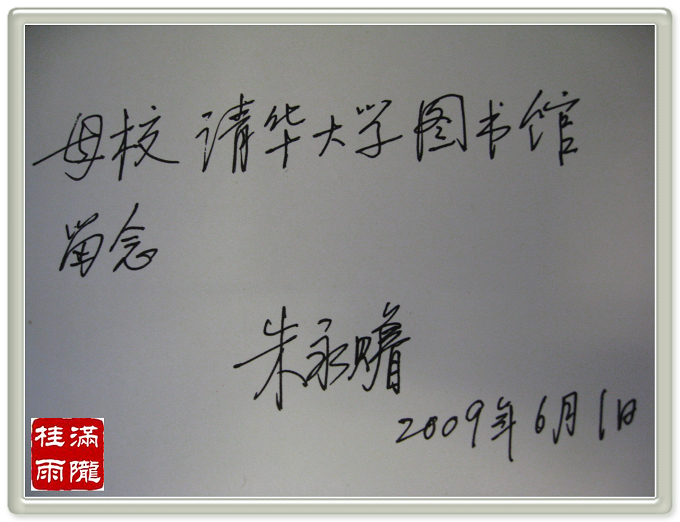 母校 清华大学图书馆
留念
朱永
2009年6月1日
滿隴
桂雨